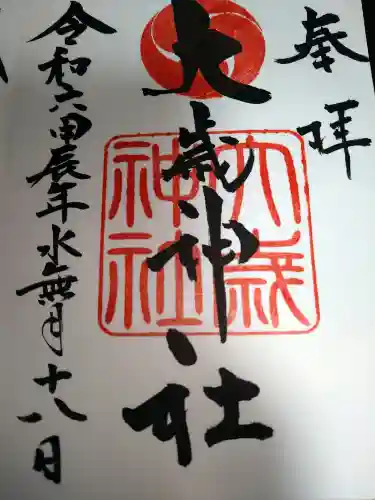 奉拝
大歳神社
大歳神社
令和六甲辰年水無月十八日